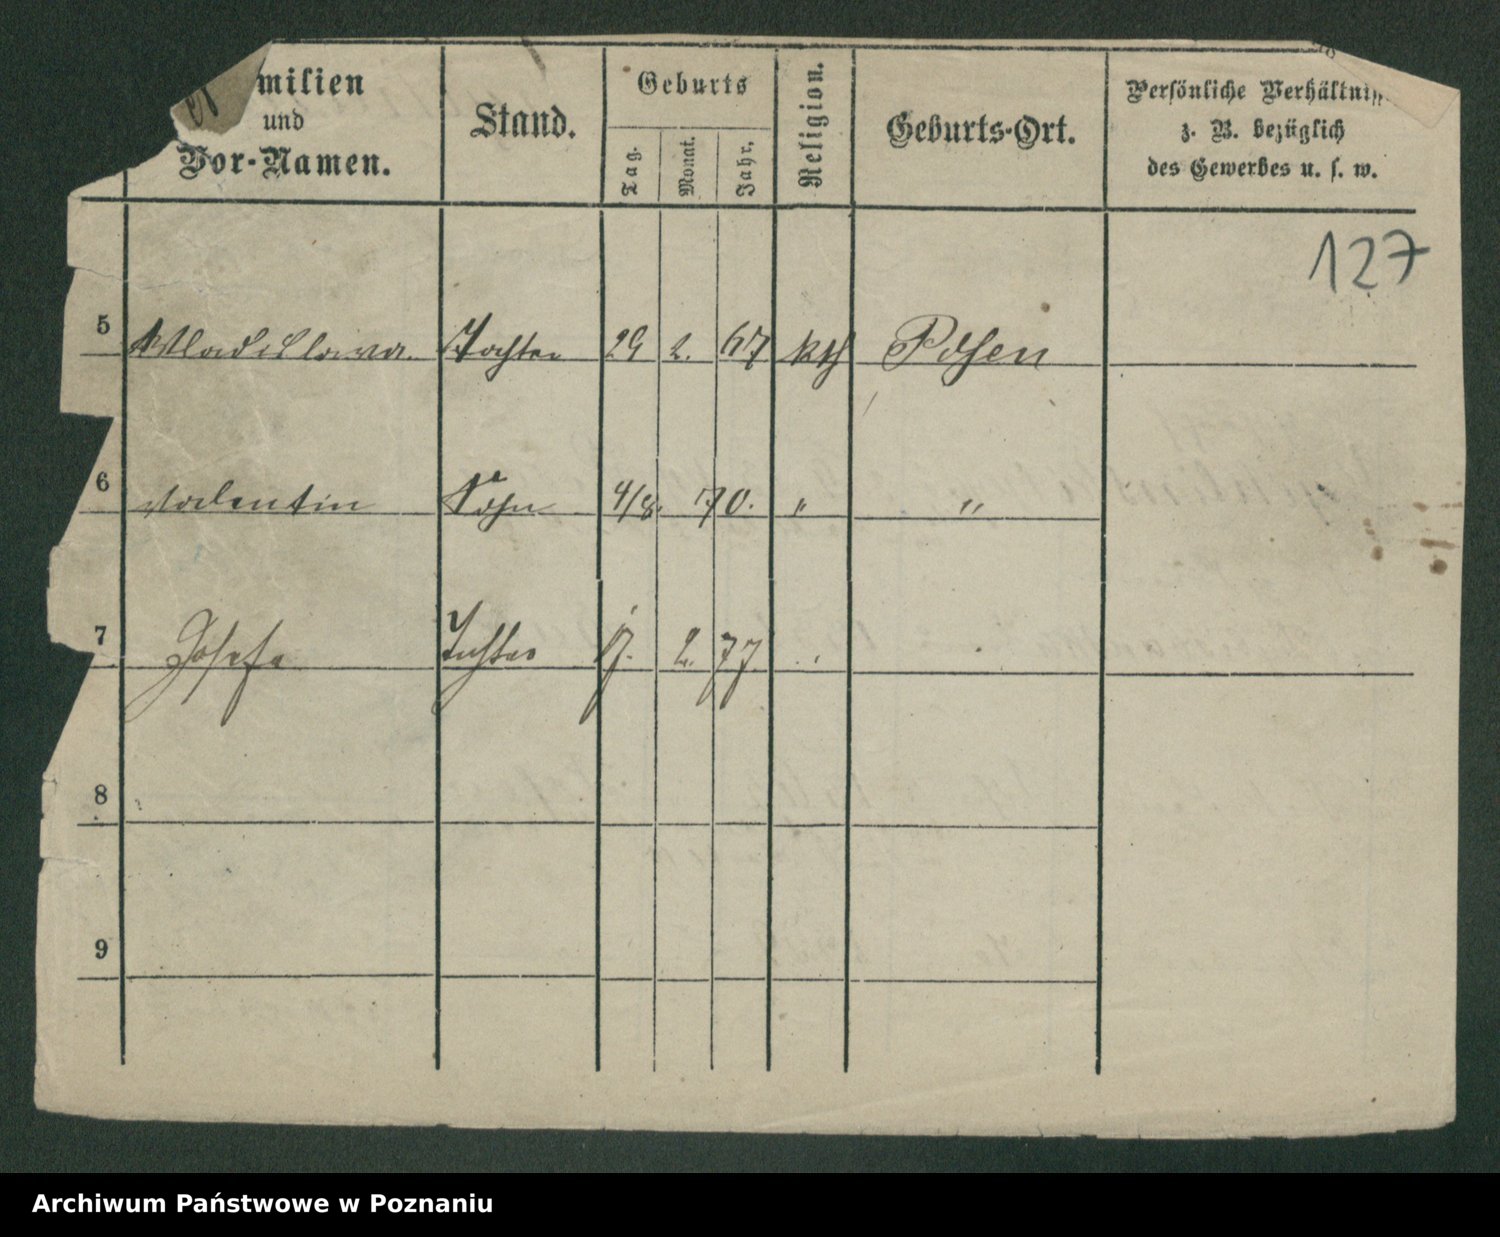 milien
und
Vor-Namen.
Stand.
Geburts
Tag.
Monat.
Jahr.
Religion.
Geburts-Ort.
Persönliche Verhältni
z. B. bezüglich
des Gewerbes u. s. w.
127
5 Wladislawa. Tochter 29 2. 67 kth Posen
6 Valentin Sohn 4/8. 70. " "
7 Josefa Tochter 2. 77
8
9
Archiwum Państwowe w Poznaniu